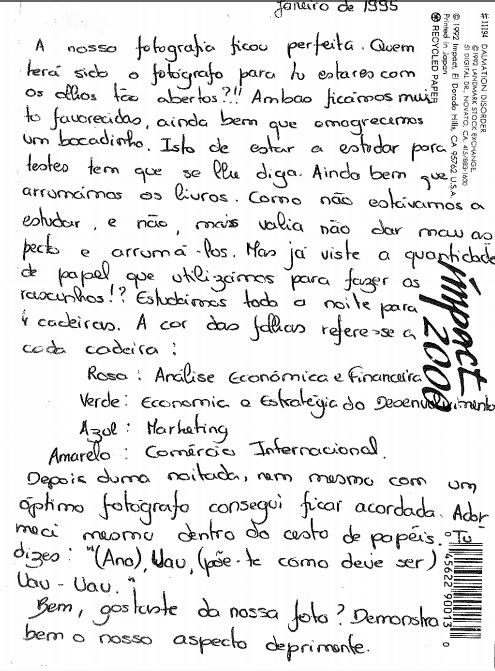 Janeiro de 1995
A nossa fotografia ficou perfeita. Quem
terá sido o fotógrafo para tu estares com
os olhos tão abertos?!! Ambas ficámos mui
to favorecidas, ainda bem que emagrecemos
um bocadinho. Isto de estar a estudar para
testes tem que se lhe diga. Ainda bem que
arrumámos os livros. Como não estávamos a
estudar, e não, mais valia não dar mau as
pecto e arrumá-los. Mas já viste a quantidade
de papel que utilizámos para fazer os
rascunhos!? Estudámos toda a noite para
4 cadeiras. A cor das folhas refere-se a
cada cadeira:
Rosa: Análise Económica e Financeira
Verde: Economia e Estratégia do Desenvolvimento
Azul: Marketing
Amarelo: Comércio Internacional.
Depois duma noitada, nem mesmo com um
óptimo fotógrafo consegui ficar acordada. Ador
meci mesmo dentro do cesto de papéis. Tu
dizes: "(Ana), Uau, (põe-te como deve ser)
Uau - Uau."
Bem, gostaste da nossa foto? Demonstra
bem o nosso aspecto deprimente.
#11194 DALMATION DISORDER
©1992 LANDMARK STOCK EXCHANGE,
51 DIGITAL DR., NOVATO, CA. 415/883-1600
© 1992 Impact, El Dorado Hills, CA 95762 U.S.A.
Printed in Japan
RECYCLED PAPER
impact
2000
0 45622 90013 0